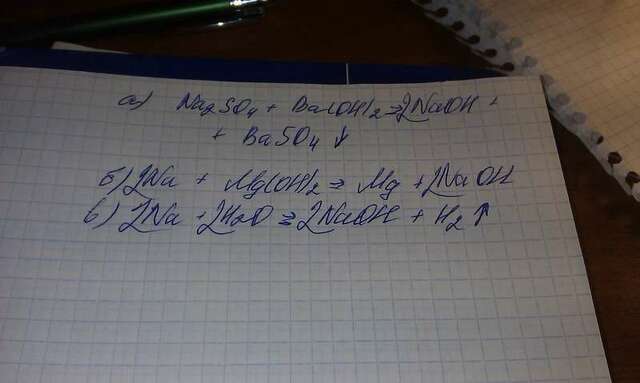 а) Na₂SO₄ + Ba(OH)₂ = 2NaOH +
+ BaSO₄ ↓
б) 2Na + Mg(OH)₂ = Mg + 2NaOH
в) 2Na + 2H₂O = 2NaOH + H₂ ↑